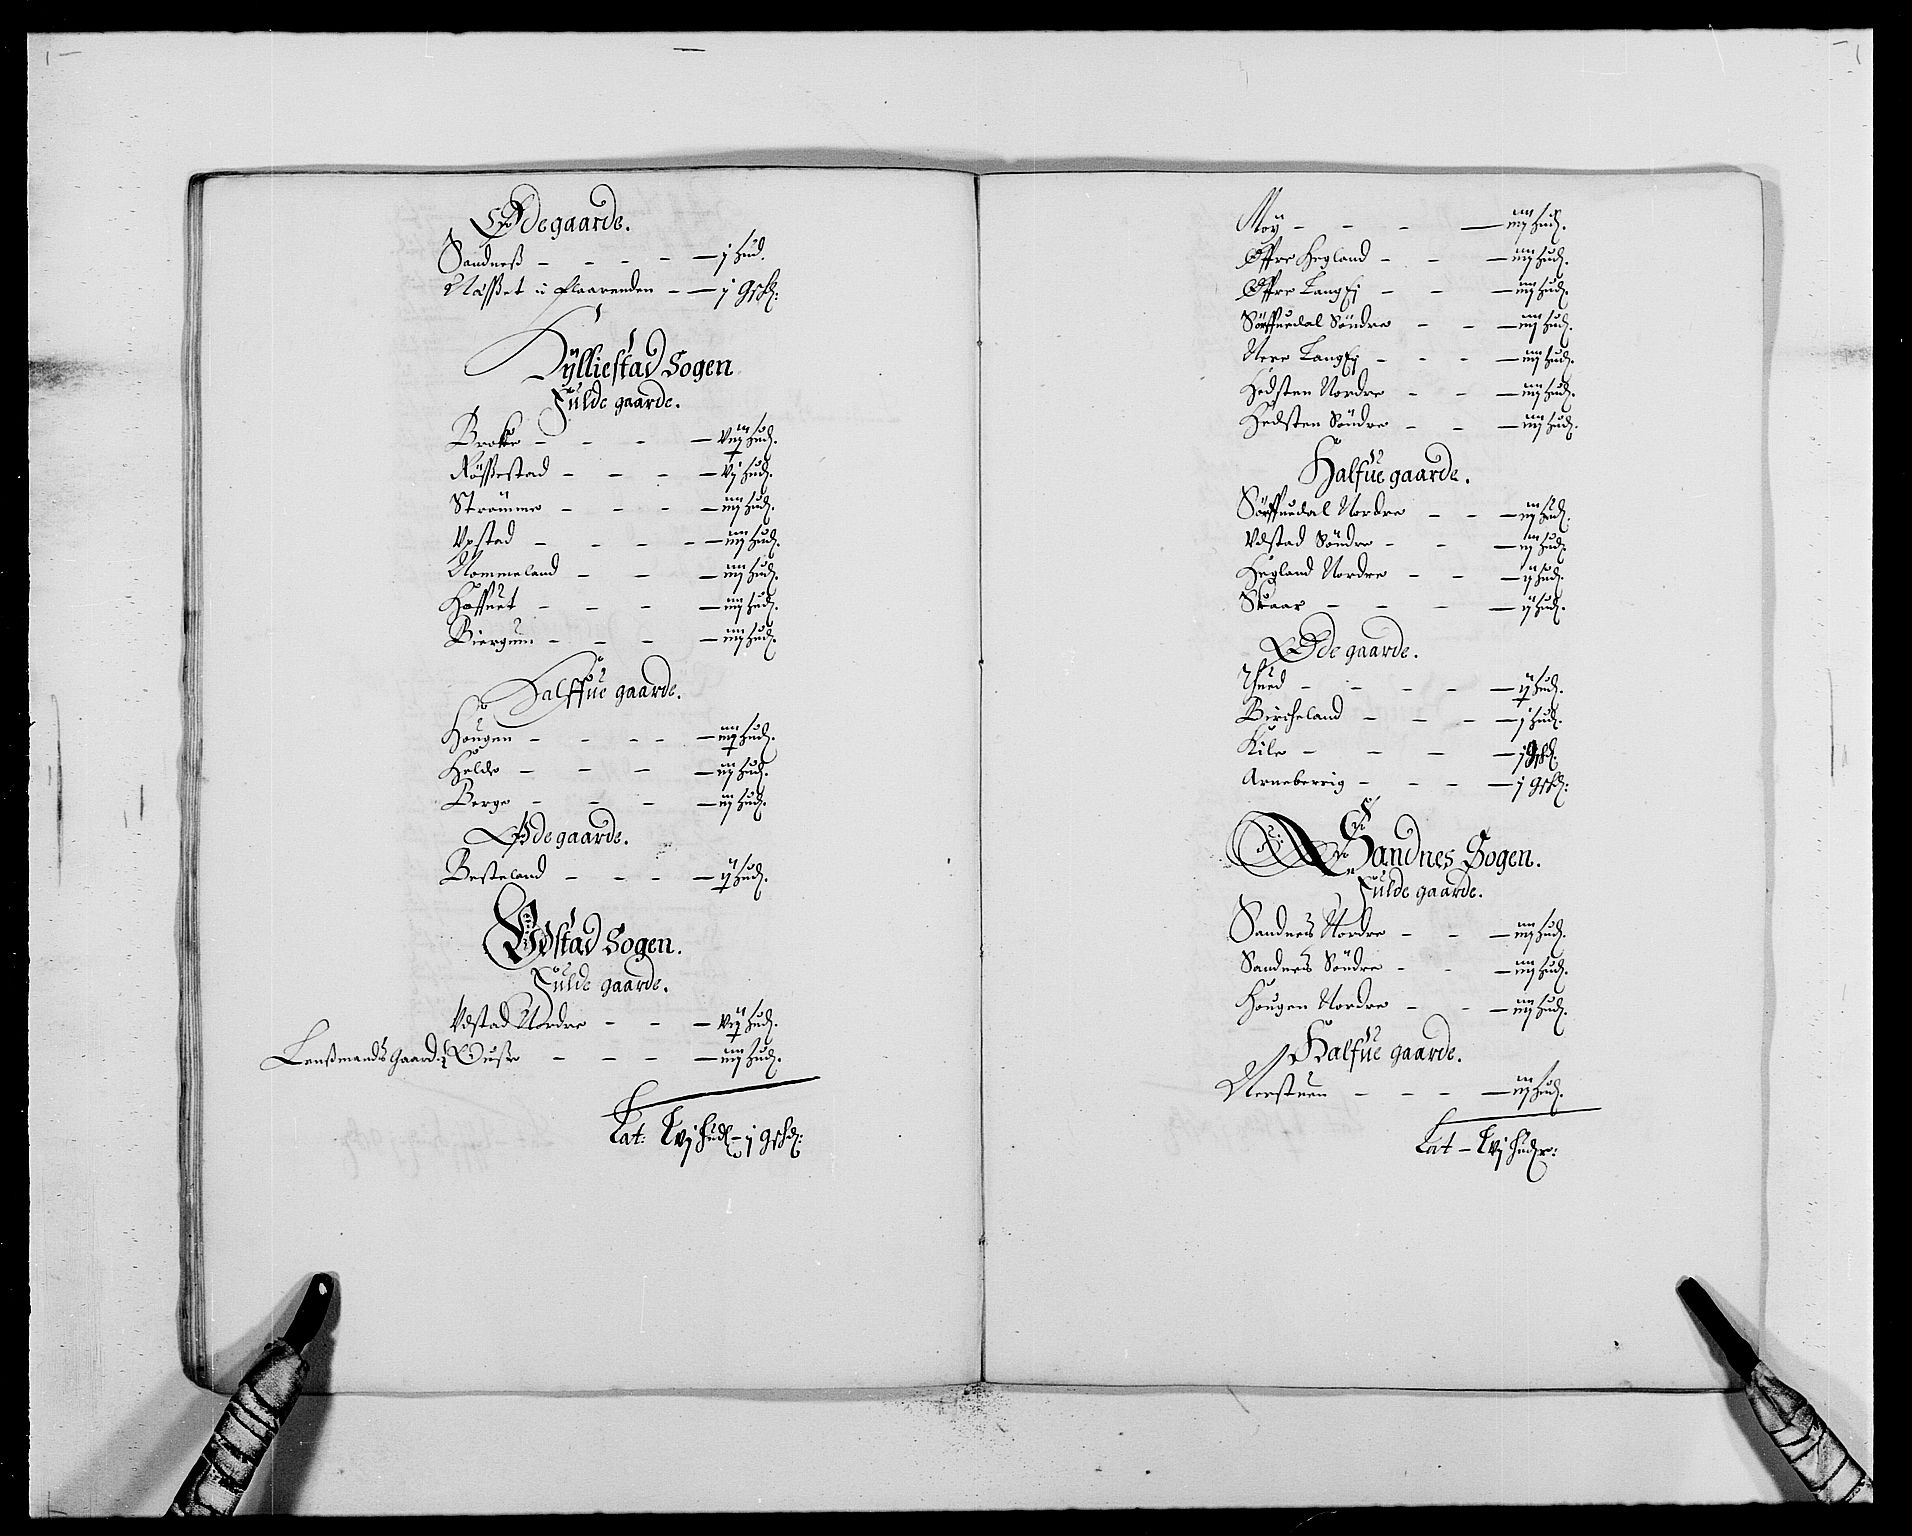 Ødegaarde.
Sandneß – – – – j Hud.
Næsset i Flaarenden – – j Gschd:
Hÿlliestad Sogen
Fulde gaarde.
Brokke – – – – Hud.
Røssestad – – – – vj Hud.
Strømme – – – – iiij Hud.
Vpstad – – – – iiij Hud.
Nommeland – – – iiij Hud.
Hoffuet – – – – iiij Hud.
Biergum – – – – iiij Hud.
Halffue gaarde.
Hougen – – – – – Hud.
Helde – – – – iij Hud.
Berge – – – – iij Hud.
Ødegaarde.
Besteland – – – – Hud.
Vdstad Sogen.
Fulde gaarde.
Vdstad Nordre – – – Hud.
Lenßmands Gaard: Ouse – – – – iiij Hud.
Lat: Lvj Hud – j Gschd:
Moÿ – – – – iiij Hud.
Øffre Hegland – – – iiij Hud.
Øffre Langej – – – iiij Hud.
Sørffuedal Søndre – – – iiij Hud.
Nere Langej – – – – iiij Hud.
Hedsten Nordre – – – iiij Hud.
Hedsten Søndre – – – iiij Hud.
Halfue gaarde.
Sørffuedal Nordre – – – iij Hud.
Vdstad Søndre – – – iij Hud.
Hegland Nordre – – – ij Hud.
Skaar – – – – ij Hud.
Øde gaarde.
Thued – – – – – Hud.
Bircheland – – – – j Hud.
Kile – – – – j Gschd.
Arneberrig – – – – j Gschd:
Sandnes Sogen.
Fulde gaarde.
Sandneß Nordre – – – iiij Hud.
Sandneß Søndre – – – iiij Hud.
Hougen Nordre – – – iiij Hud.
Halfue gaarde.
Nerstuen – – – – iij Hud.
Lat – Lvj Huder: